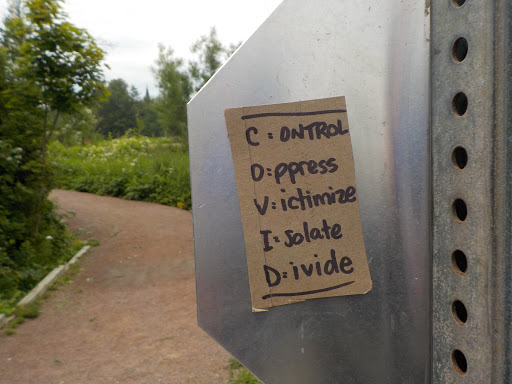 C = ONTROL
O=ppress
V=ictimize
I=solate
D=ivide